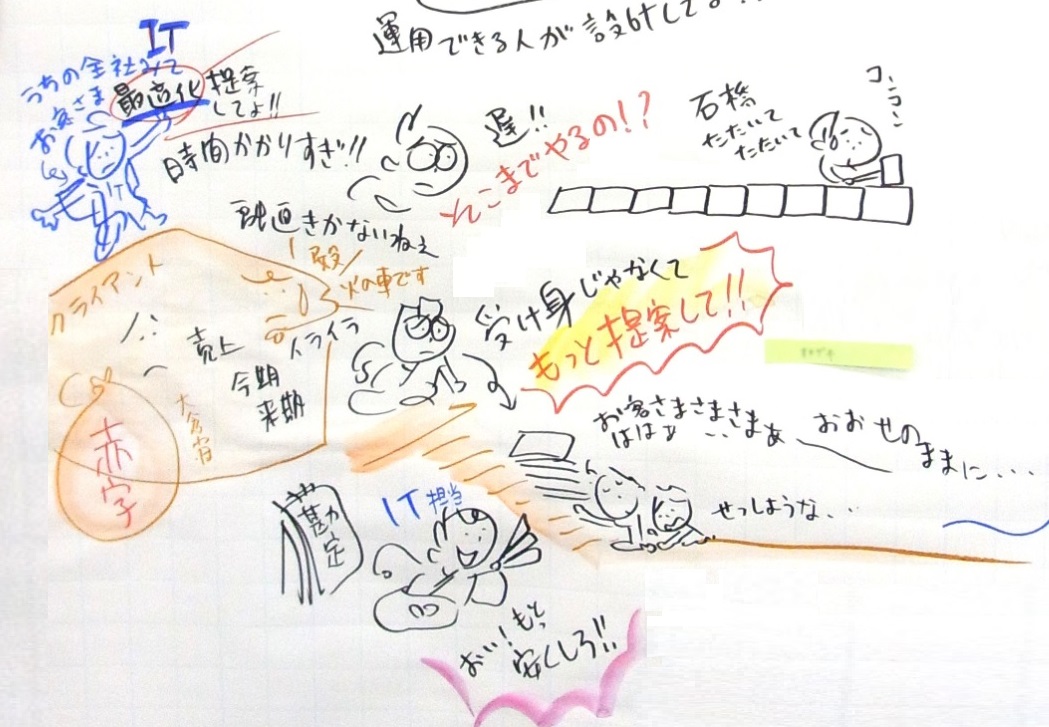 運用できる人が設計して
IT
うちの会社みて
お客さま
最適化
提案
してよ!!
時間かかりすぎ!!
遅!!
そこまでやるの!?
石橋
たたいて
たたいて
コンコン
融通きかないねぇ
殿
火の車です
クライアント
イライラ
売上
今期
来期
赤字
受け身じゃなくて
もっと提案して!!
お客さまさまさまぁ
ははぁ
おおせの
ままに...
せっしような...
勘定
IT担当
おい!もっと
安くしろ!!